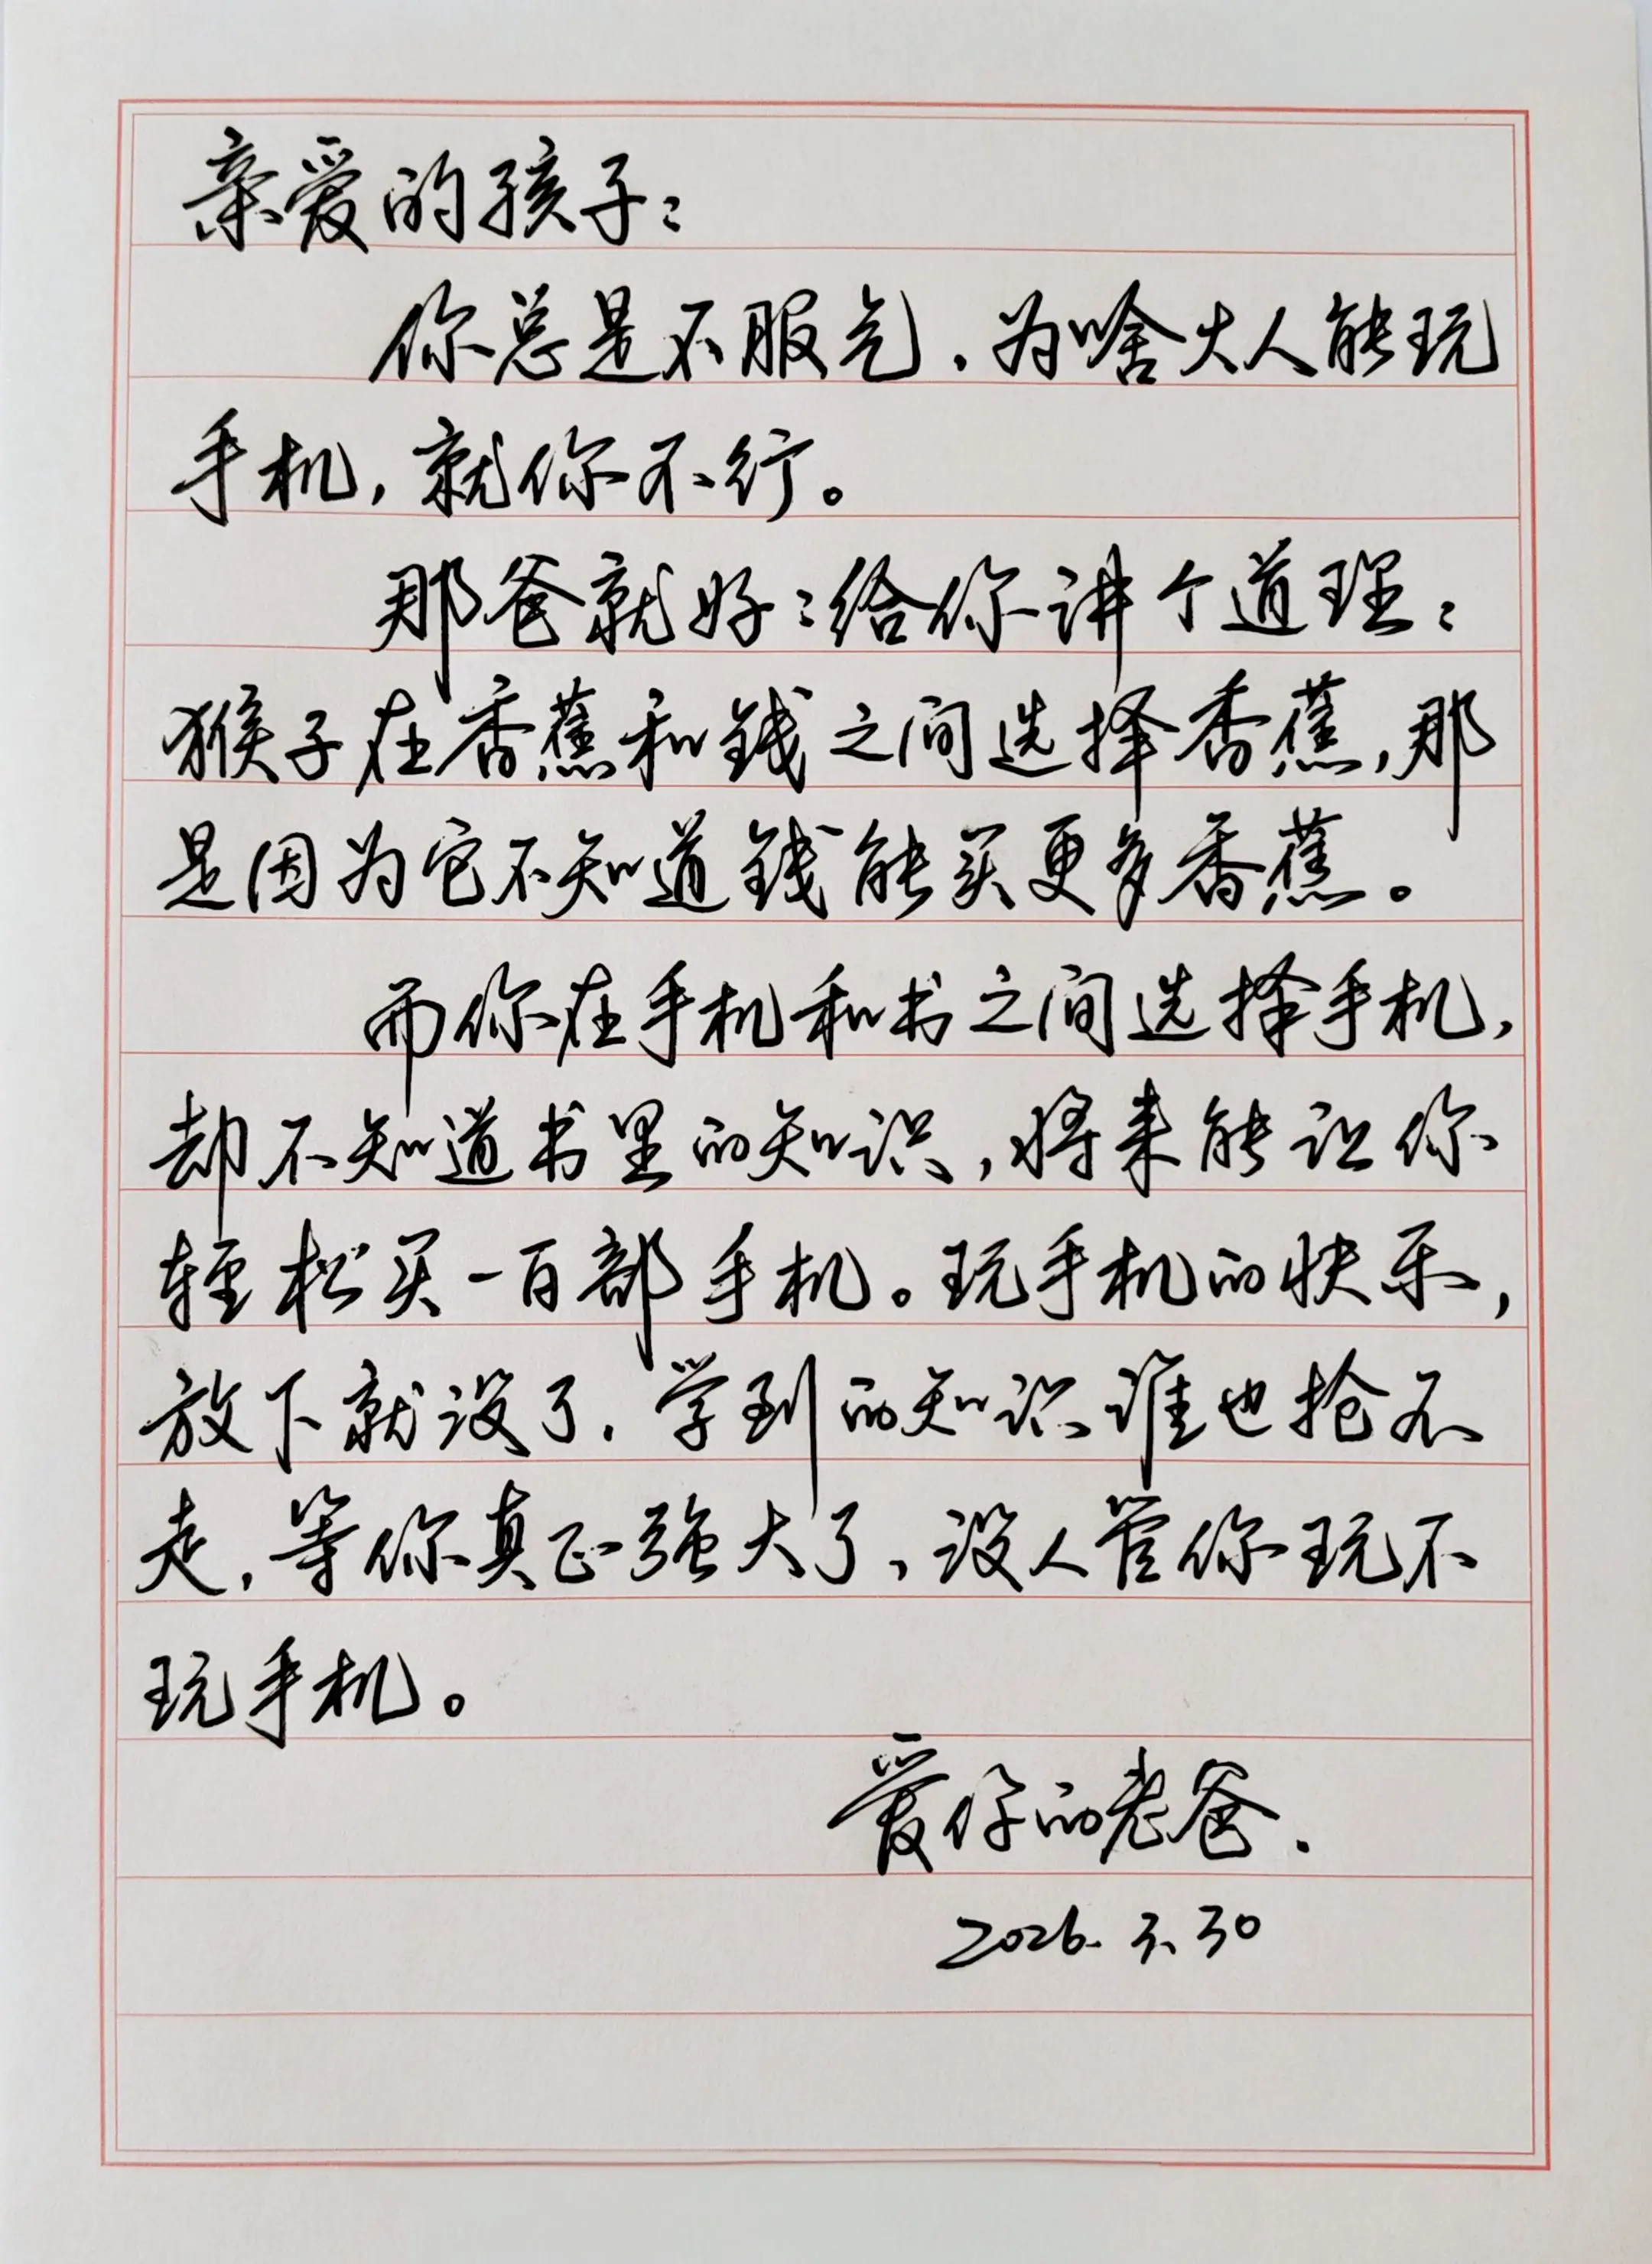 亲爱的孩子：
你总是不服气，为啥大人能玩
手机，就你不行。
那爸就好：给你讲个道理：
猴子在香蕉和钱之间选择香蕉，那
是因为它不知道钱能买更多香蕉。
而你在手机和书之间选择手机，
却不知道书里的知识，将来能让你
轻松买一百部手机。玩手机的快乐，
放下就没了，学到的知识谁也抢不
走，等你真正强大了，没人管你玩不
玩手机。
爱你的老爸.
2026.3.30